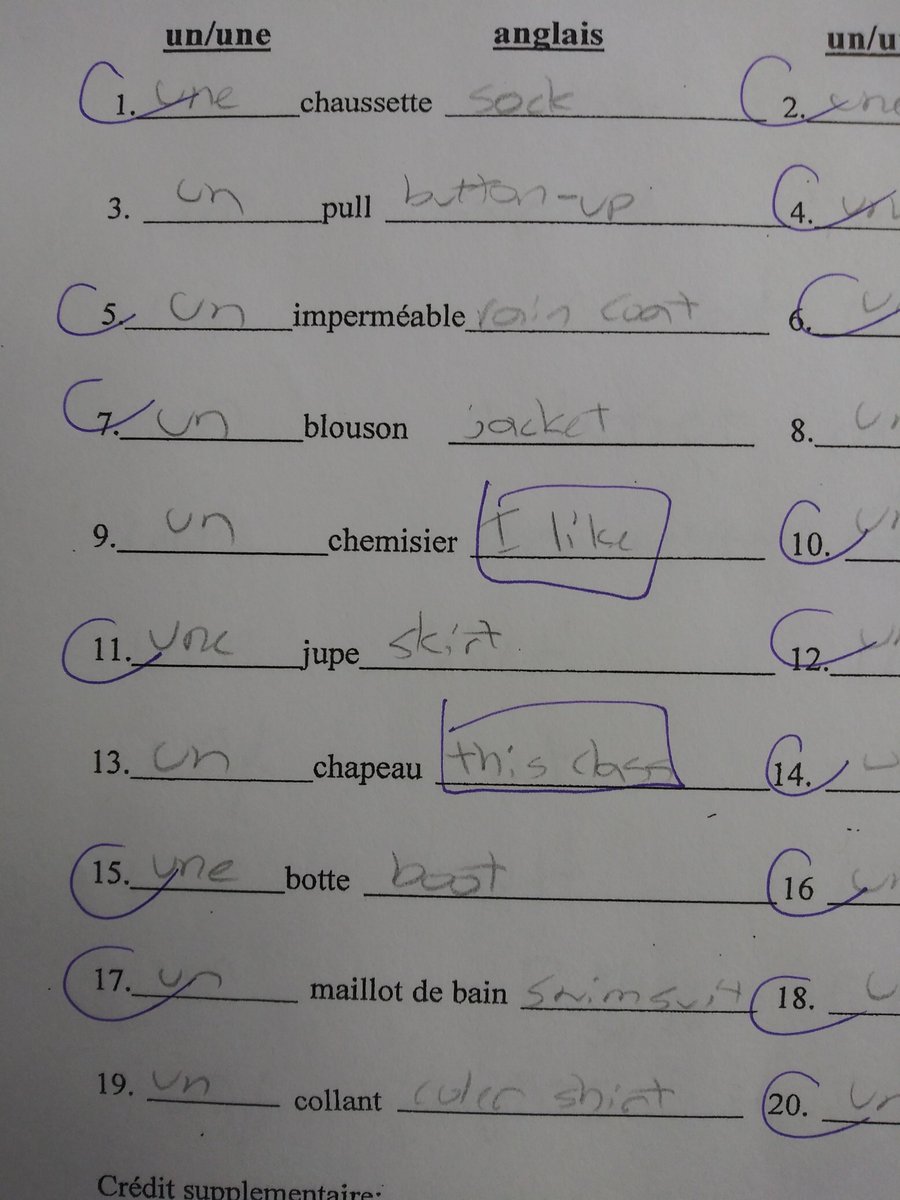 un/une anglais un/u
1. une chaussette sock 2. une
3. un pull button-up 4. un
5. un imperméable rain coat 6. u
7. un blouson jacket 8. u
9. un chemisier I like 10. u
11. une jupe skirt 12. u
13. un chapeau this class 14. u
15. une botte boot 16 u
17. un maillot de bain swimsuit 18. u
19. un collant shirt 20. un
Crédit supplementaire: